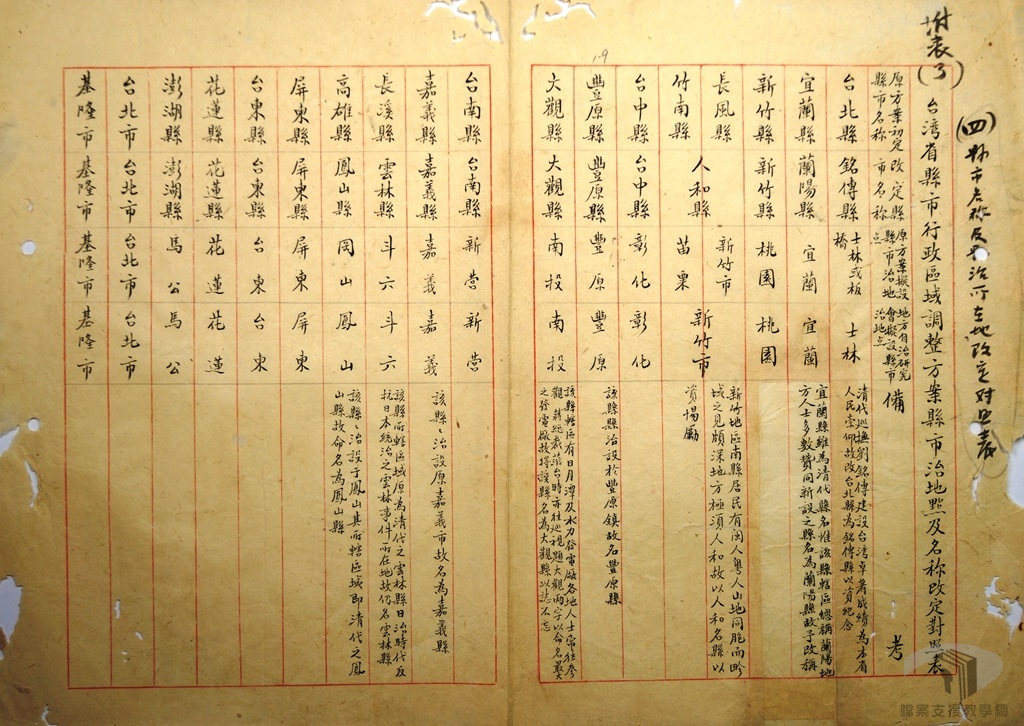 附表(3)
(四)縣市名称及县治所在地改定对照表
台湾省縣市行政區域調整方案縣市治地點及名称改定對照表
原方案初定縣市名称
改定縣市名称
原方案擬設縣市治地点
地方自治研究會擬設縣市治地点
備考
台北縣 銘傳縣 士林或板橋 士林 清代巡撫劉銘傳建設台湾卓著成績為本省人民崇仰故改台北縣為銘傳縣以資紀念
宜蘭縣 蘭陽縣 宜蘭 宜蘭 宜蘭縣雖為清代縣名惟該縣轄區總稱蘭陽地方人士多數贊同新設之縣名為蘭陽縣故予改稱
新竹縣 新竹縣 桃園 桃園
長風縣 人和縣 新竹市 新竹市 新竹地區南縣居民有闽人粵人山地同胞而畛域之見頗深地方極須人和故以人和名縣以資揚勵
竹南縣 苗栗
台中縣 台中縣 彰化 彰化
豐原縣 豐原縣 豐原 豐原 該縣縣治設於豐原鎮故名豐原縣
大觀縣 大觀縣 南投 南投 該縣轄區有日月潭及水力發電廠各地人士常往参觀蔣總裁蒞台時亦往巡視題大觀兩字以命名之發電廠故將該縣名為大觀縣以誌不忘
台南縣 台南縣 新營 新營
嘉義縣 嘉義縣 嘉義 嘉義 該縣、治設原嘉義市故名為嘉義縣
長溪縣 雲林縣 斗六 斗六 該縣所轄區域原為清代之雲林縣日治時代及抗日本統治之雲林事件所在地故仍名雲林縣
高雄縣 鳳山縣 岡山 鳳山 該縣、治設于鳳山其所轄區域即清代之鳳山縣故命名為鳳山縣
屏東縣 屏東縣 屏東 屏東
台東縣 台東縣 台東 台東
花蓮縣 花蓮縣 花蓮 花蓮
澎湖縣 澎湖縣 馬公 馬公
台北市 台北市 台北市 台北市
基隆市 基隆市 基隆市 基隆市
19
檔案支援教學網